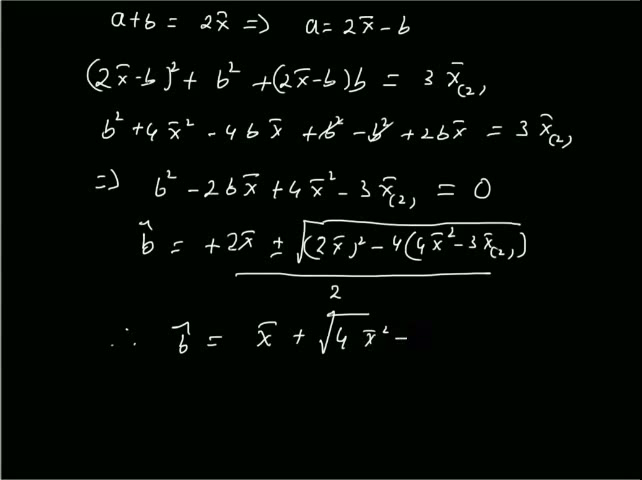 a+b = 2x̄ => a = 2x̄ - b
(2x̄-b)² + b² + (2x̄-b)b = 3 x̄₍₂₎
b² + 4x̄² - 4bx̄ + b² - b² + 2bx̄ = 3 x̄₍₂₎
=> b² - 2bx̄ + 4x̄² - 3x̄₍₂₎ = 0
b̂ = +2x̄ ± √((2x̄)² - 4(4x̄² - 3x̄₍₂₎))
2
∴ b̂ = x̄ + √4 x̄² -